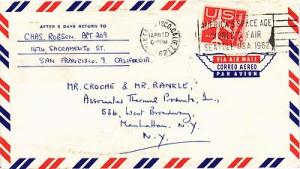 AFTER 5 DAYS RETURN TO
CHAS. ROBSON. APT 209
1474 SACRAMENTO ST.
SAN FRANCISCO. 9. CALIFORNIA.
AMERICA'S SPACE AGE
WORLD'S FAIR
SEATTLE USA 1962
VIA AIR MAIL
CORREO AEREO
PAR AVION
MR. CROCHE & MR. RANKLE,
Associated Thermal Products, Inc.,
West Broadway,
Manhattan, N.Y.
N.Y.